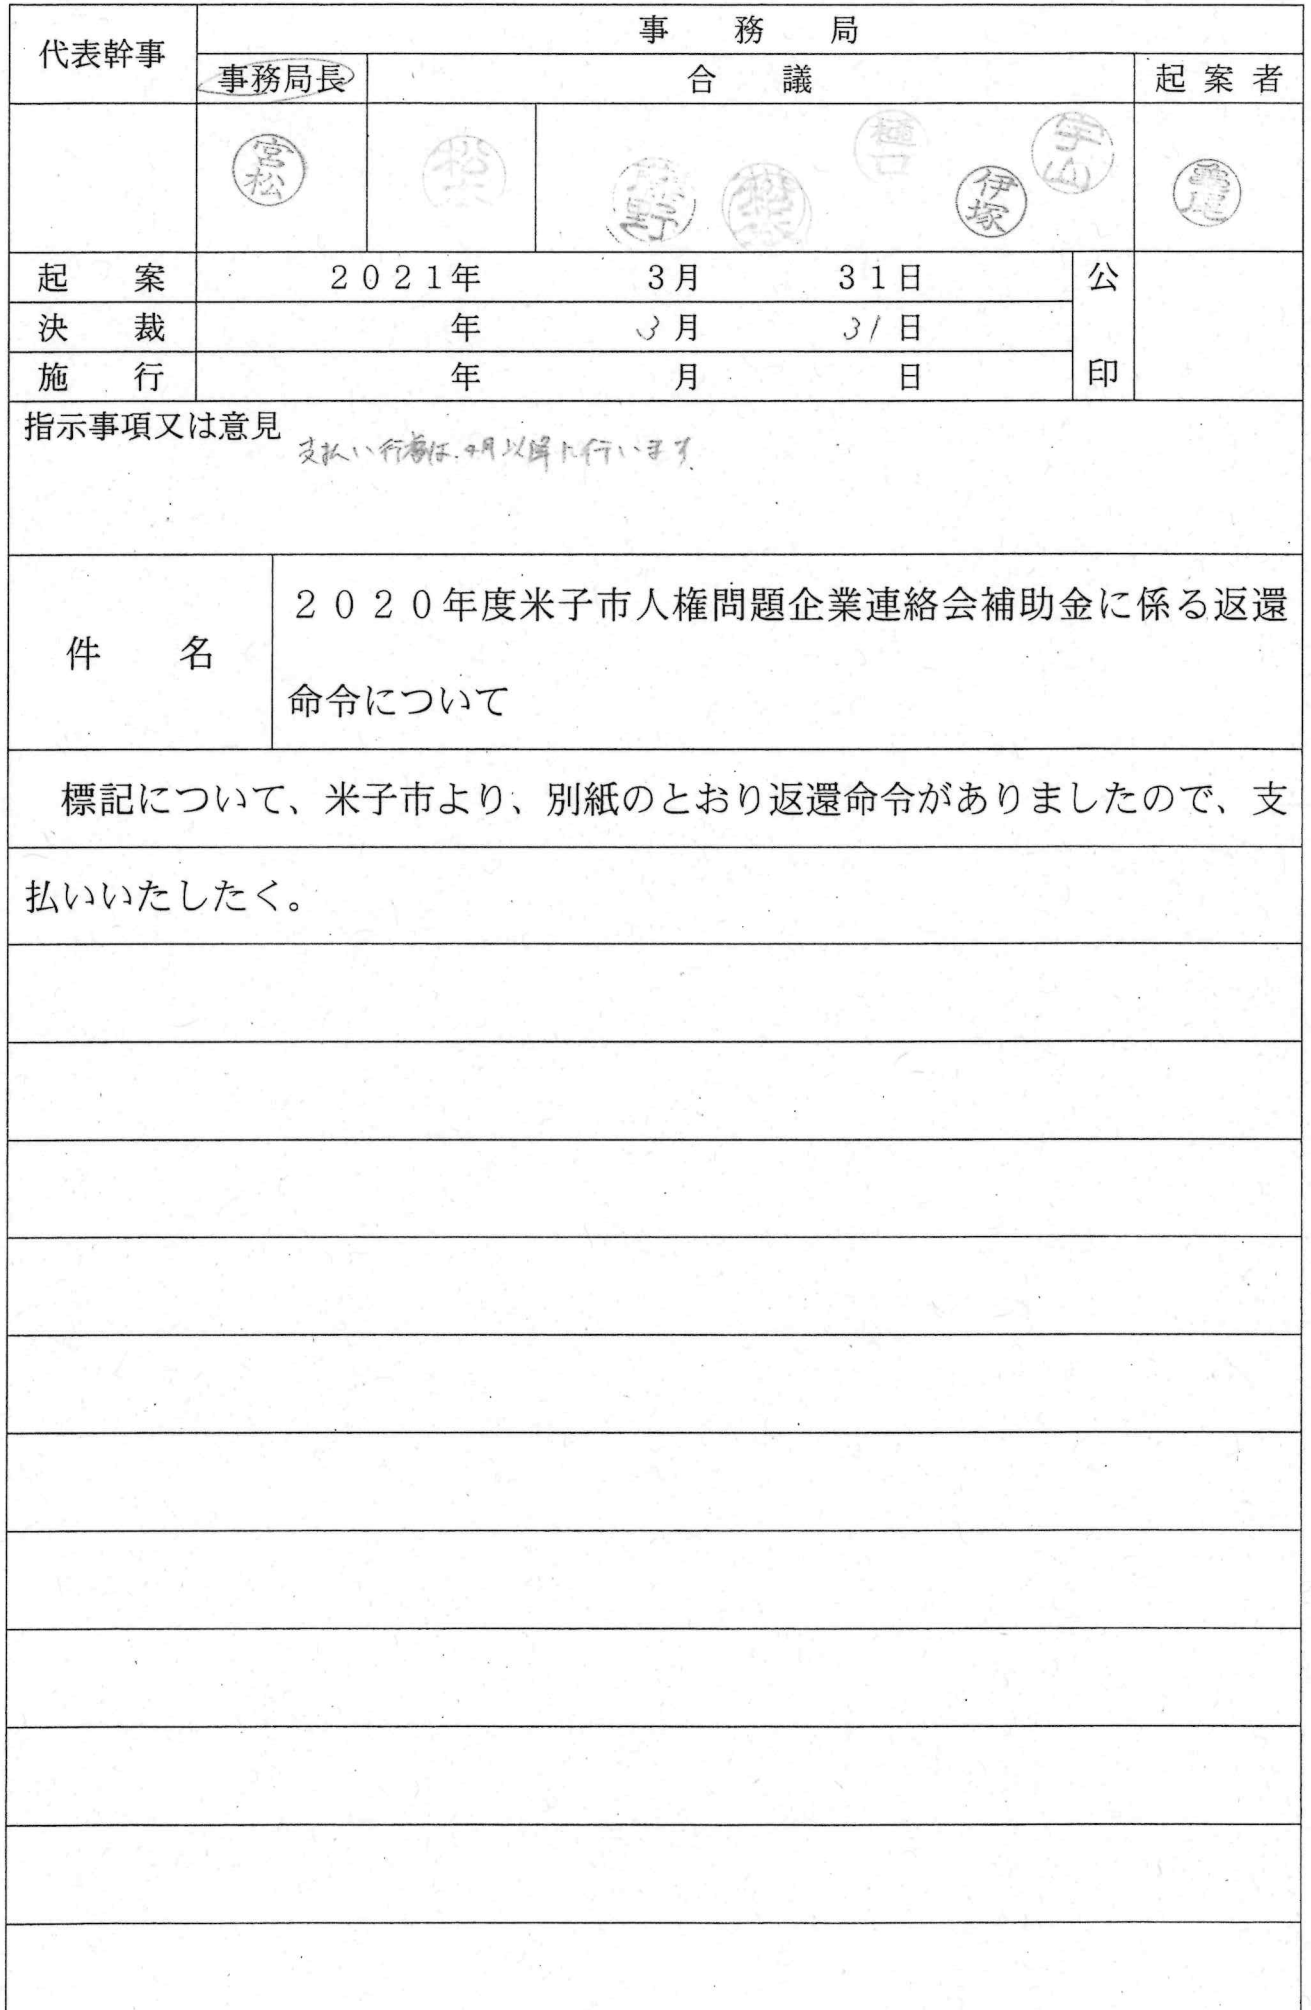 代表幹事
事　務　局
事務局長
合　議
起案者
宮松
樋口
宇山
伊塚
起　案　２０２１年　３月　３１日　公
決　裁　年　3月　31日
施　行　年　月　日　印
指示事項又は意見
支払い行為は、4月以降に行います
２０２０年度米子市人権問題企業連絡会補助金に係る返還
件　名
命令について
標記について、米子市より、別紙のとおり返還命令がありましたので、支
払いいたしたく。